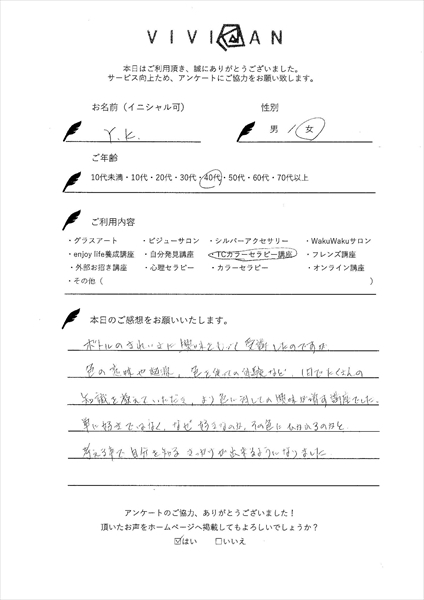 VIVIAN
本日はご利用頂き、誠にありがとうございました。
サービス向上ため、アンケートにご協力をお願い致します。
お名前（イニシャル可） 性別
Y.K. 男 / 女
ご年齢
10代未満・10代・20代・30代・40代・50代・60代・70代以上
ご利用内容
・グラスアート ・ビジューサロン ・シルバーアクセサリー ・WakuWakuサロン
・enjoy life養成講座 ・自分発見講座 ・TCカラーセラピー講座 ・フレンズ講座
・外部お招き講座 ・心理セラピー ・カラーセラピー ・オンライン講座
・その他（ ）
本日のご感想をお願いいたします。
ボトルのきれいさに興味をもって受講したのですが、
色の意味や 、色を使っての体験など、1日でたくさんの
知識を教えていただき、より色に対しての興味が増す講座でした。
単に好きではなく、なぜ好きなのか、その色にひかれるのかを
考える事で自分を知る きっかけが出来るようになりました
アンケートのご協力、ありがとうございました！
頂いたお声をホームページへ掲載してもよろしいでしょうか？
☑はい □いいえ